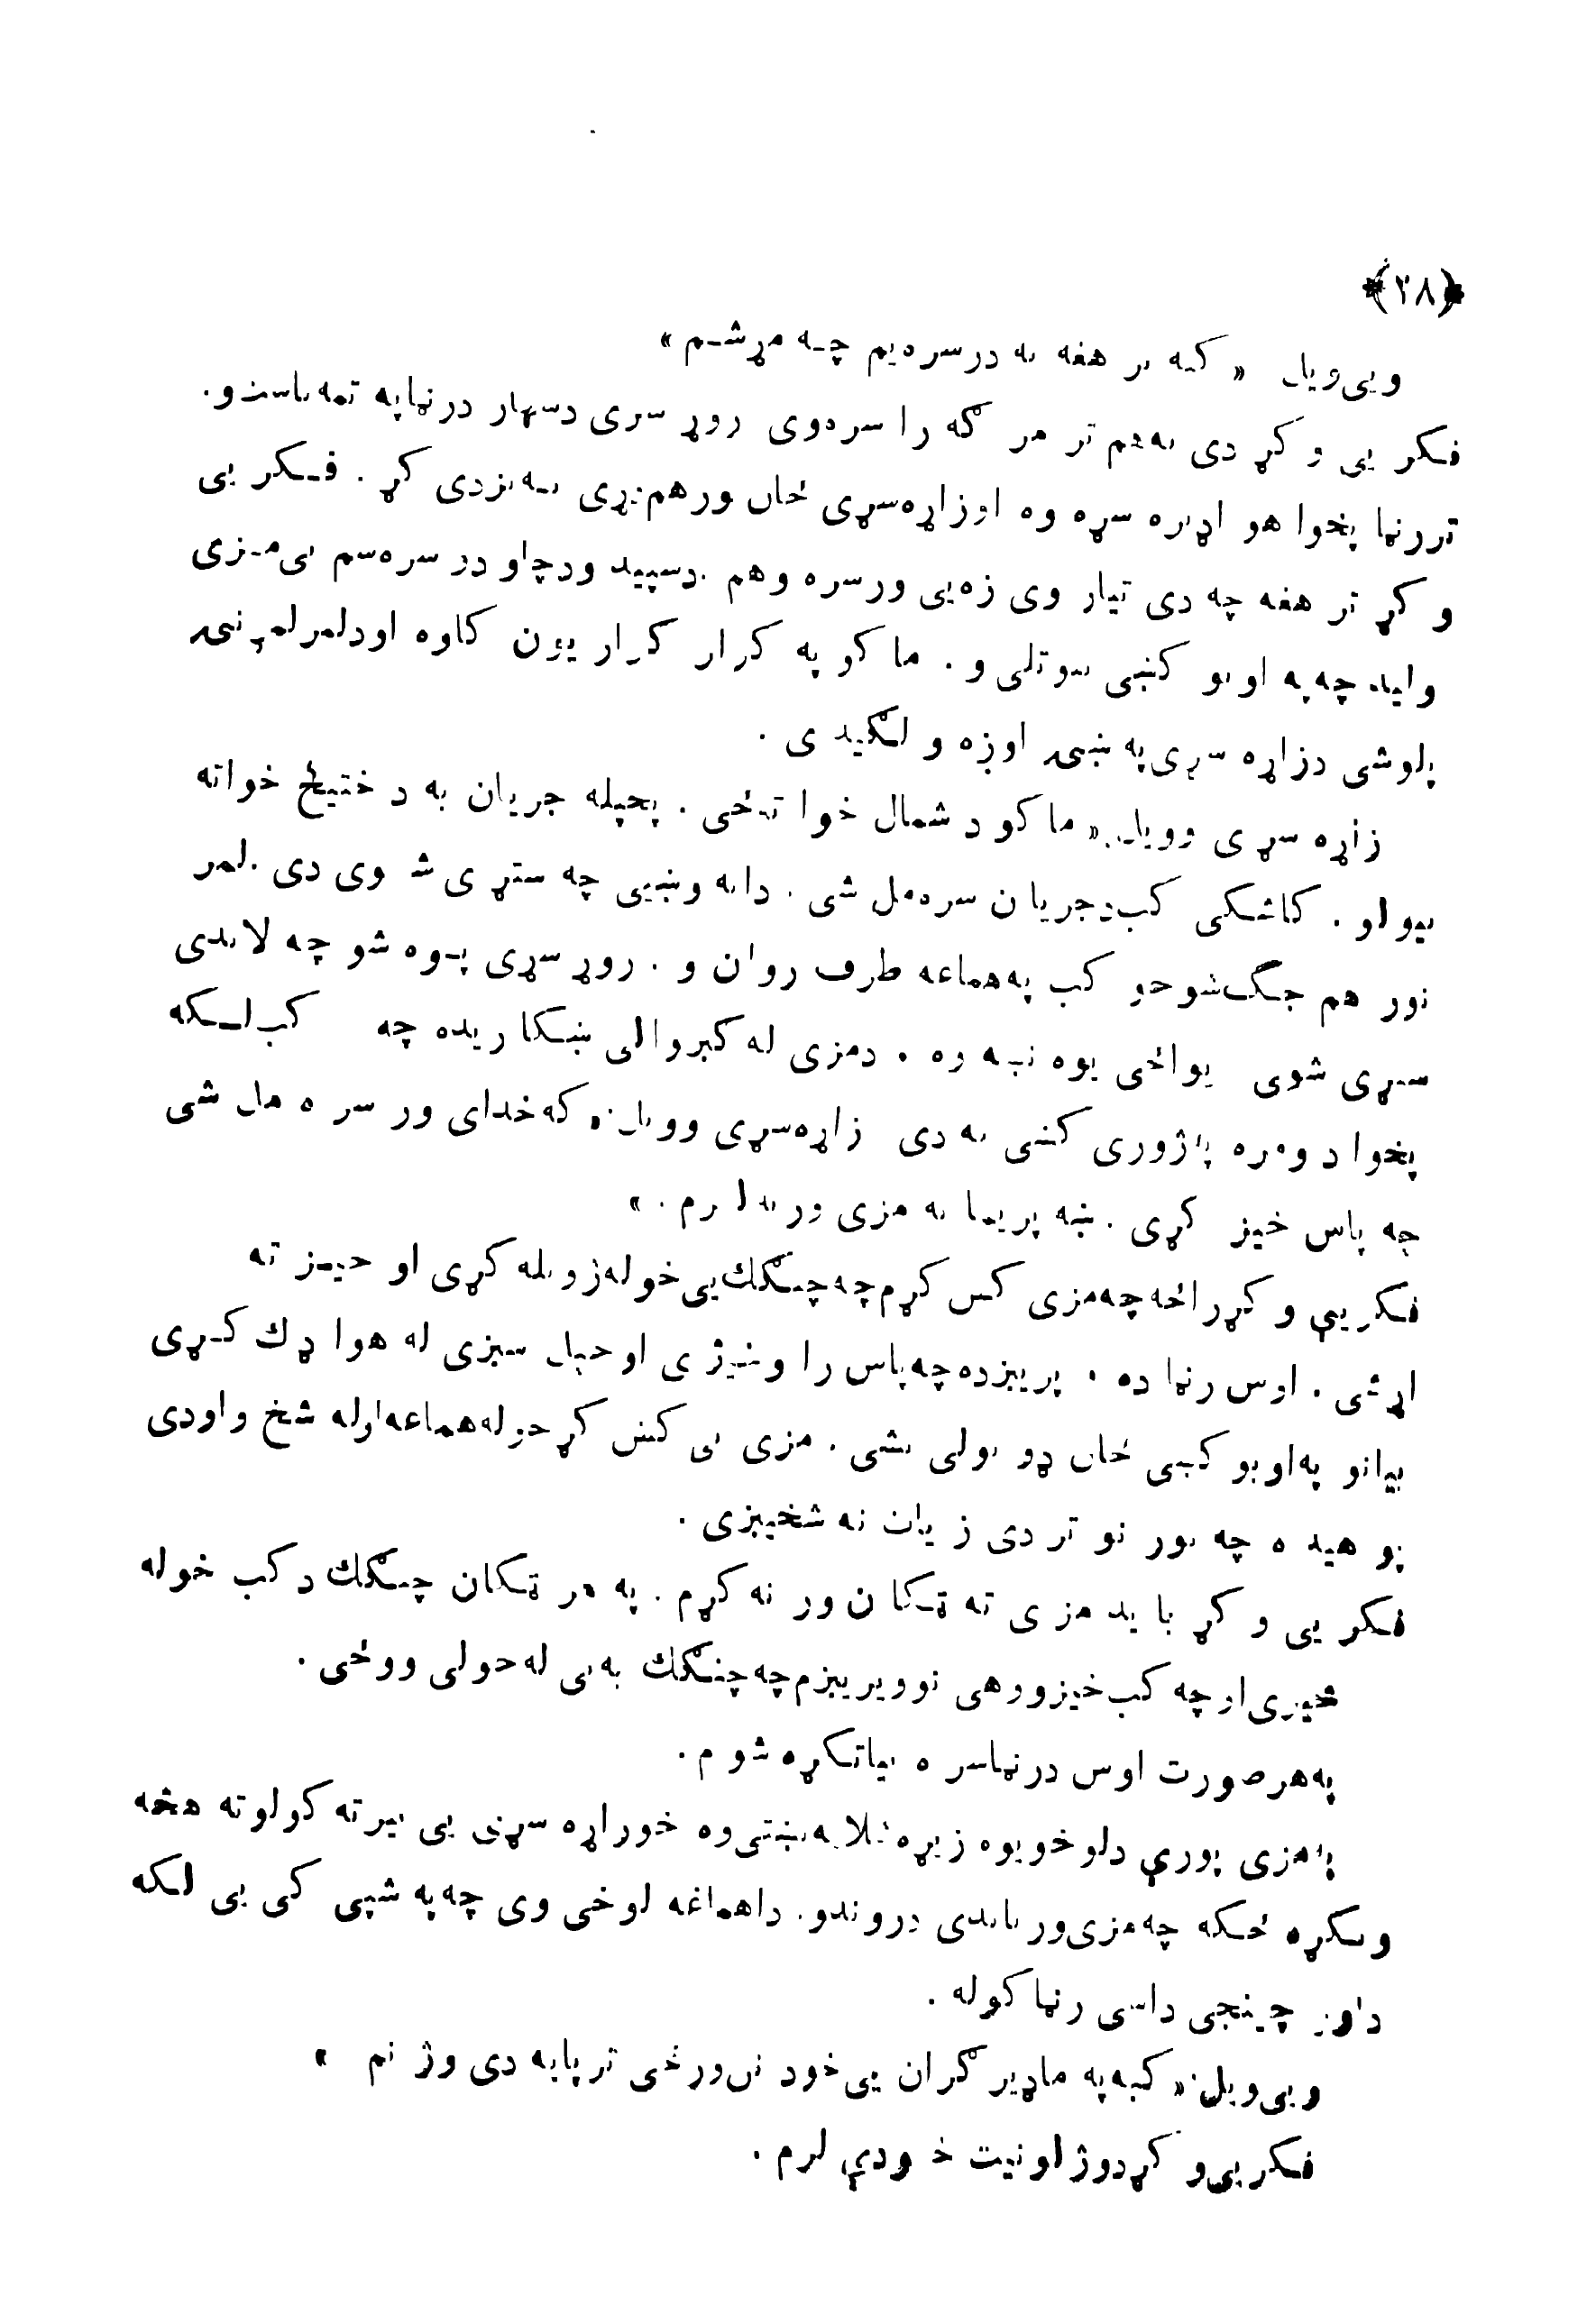 ﴿۲۸﴾
ویی‌ویل « کبه تر هغه به درسره‌یم چه مړشم »
فکر یی و کړ دی به هم تر مرګه را سره‌وی زوړ سړی دسهار درڼا په تمه ناست‌و.
تررڼا پخوا هوا ډیره سړه وه اوزاړه‌سړی ځان ورهم‌پړی نه‌نزدی کړ . فکر یی
و کړ تر هغه چه دی تیار وی زه‌یی ورسره وهم . دسپیده ودچاو در سره‌سم یی‌مزی
ولید چه‌په اوبو کښی ننوتلی و . ماکو په کرار کرار یون کاوه اودلمر لمړنی
پلوشی دزاړه سړی‌په ښی اوږه و لګیدی .
زاړه سړی وویل « ماکو د شمال خوا ته‌ځی . پخپله جریان به د ختیځ خواته
بیولو . کاشکی کب‌دجریان سره‌مل شی . دابه وښیی چه ستړی شوی دی . لمر
نور هم جګ‌شوخو کب په‌هماغه طرف روان و . زوړ سړی پوه شو چه لاندی
ستړی شوی یواځی یوه نښه وه . دمزی له کبروالی ښکاریده چه کب‌لکه
پخوا دومره پاژوری کښی نه دی زاړه‌سړی وویل « که‌خدای ور سره مل شی
چه پاس خیز کړی . ښه پریما نه مزی ورته لرم . »
فکریې و کړراځه‌چه‌مزی کس کړم‌چه‌چنګک‌یی‌خوله‌زوبله‌کړی او خیز ته
اړشی . اوس رڼا ده . پریږده‌چه‌پاس را وخیژی اوخپل سږی له هوا ډک کړی
بیانو په‌اوبو کښی ځان ډوبولی نشی . مزی یی کش کړخوله‌هماغه‌اوله شخ واودی
پوهیده چه نور نو تر دی زیات نه شخیږی .
فکر یی و کړ باید مزی ته ټکان ور نه کړم . په هر ټکان چنګک دکب خوله
څیری‌اوچه کب‌خیزووهی نوویریږم‌چه‌چنګک به‌یی له‌خولی ووځی .
په‌هرصورت اوس درڼاسره بیاتکړه شوم .
پامزی پوری دلوخویوه زیړه څلا به‌ښتی‌وه خوزاړه سړی یی بیرته کولوته هڅه
ونکړه ځکه چه‌مزی‌ورباندی دروندو. داهماغه لوخی وی چه‌په شپی کی یی لکه
داور چینجی داسی رڼا کوله .
ویی‌ویل « کبه‌په ماډیر ګران یی‌خود نن‌ورځی ترپایه دی وژنم »
فکریی‌و کړدوژلونیت خودې لرم .